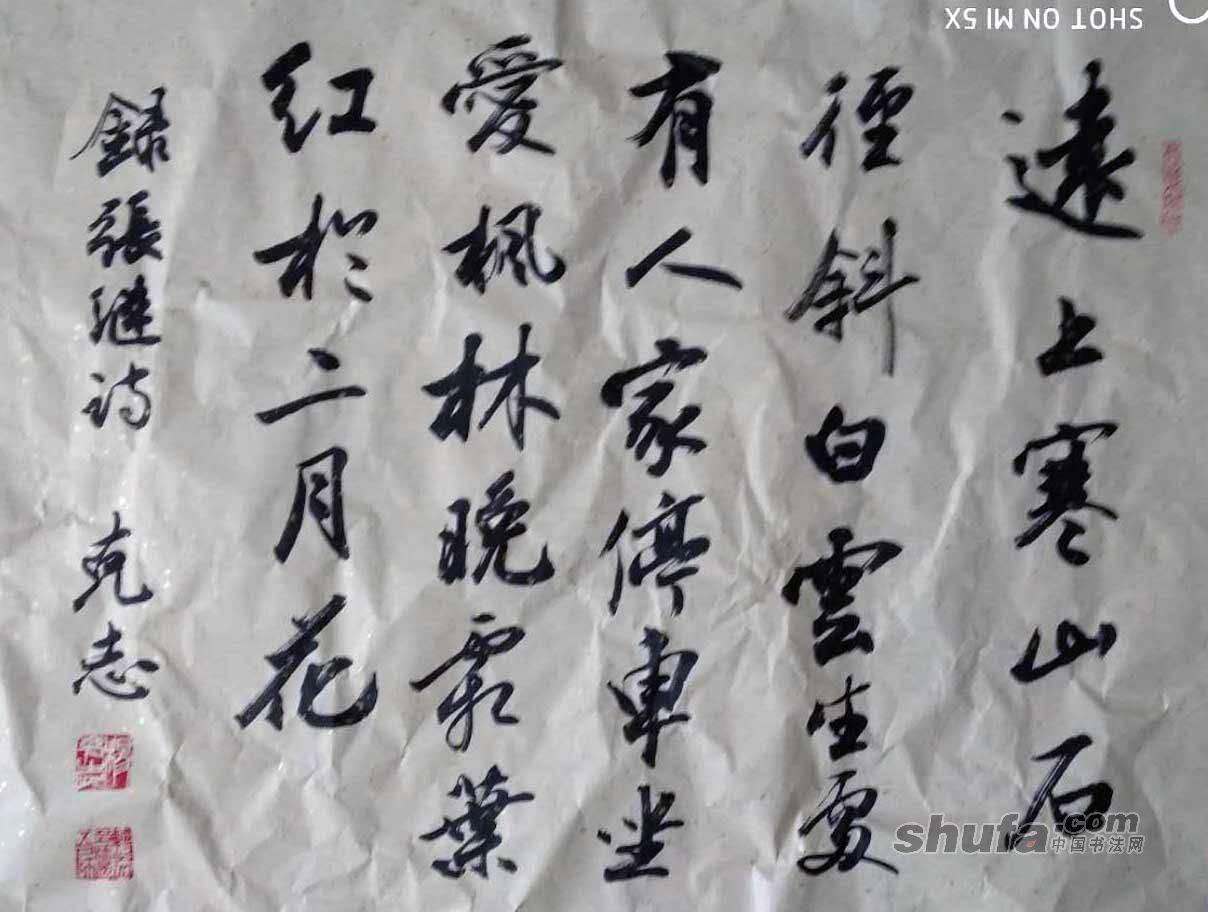 遠上寒山石
徑斜白雲生處
有人家停車坐
愛楓林晚霜葉
紅於二月花
錄張繼詩 克志
SHOT ON MI 5X
shufa.com
中国书法网